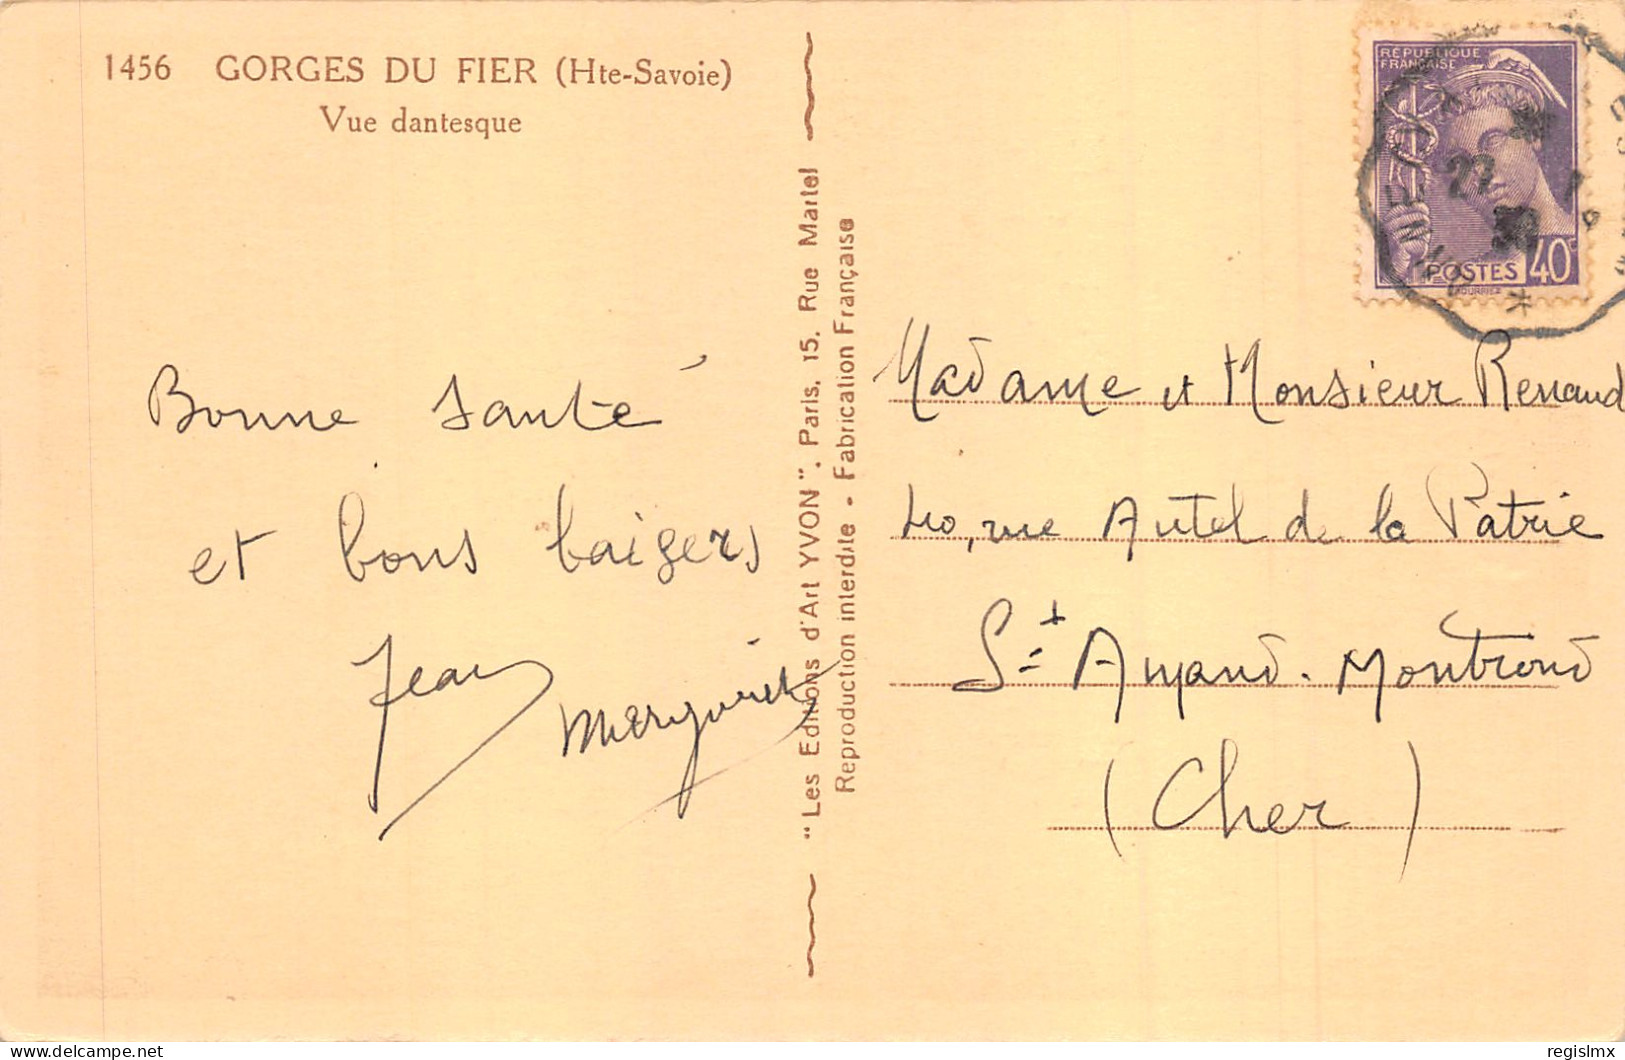 1456 GORGES DU FIER (Hte-Savoie)
Vue dantesque
Bonne santé
et bons baisers
Jean
Marguerite
"Les Editions d'Art YVON", Paris, 15, Rue Martel
Reproduction interdite - Fabrication Française
RÉPUBLIQUE
FRANÇAISE
POSTES 40c
27
Madame et Monsieur Renaud
40, rue Autel de la Patrie
St Amand-Montrond
(Cher)
delcampe.net
regislmx